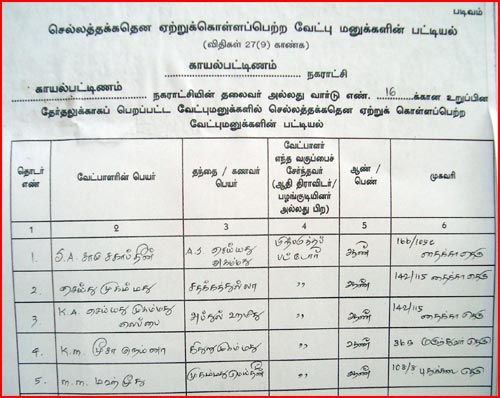 படிவம்
செல்லத்தக்கதென ஏற்றுக்கொள்ளப்பெற்ற வேட்பு மனுக்களின் பட்டியல்
(விதிகள் 27(9) காண்க)
காயல்பட்டிணம் நகராட்சி
காயல்பட்டிணம் நகராட்சியின் தலைவர் அல்லது வார்டு எண். 16 க்கான உறுப்பின
தேர்தலுக்காகப் பெறப்பட்ட வேட்புமனுக்களில் செல்லத்தக்கதென ஏற்றுக் கொள்ளப்பெற்ற
வேட்புமனுக்களின் பட்டியல்
தொடர் எண்
வேட்பாளரின் பெயர்
தந்தை / கணவர் பெயர்
வேட்பாளர் எந்த வகுப்பைச் சேர்ந்தவர் (ஆதி திராவிடர்/ பழங்குடியினர் அல்லது பிற)
ஆண் / பெண்
முகவரி
1 2 3 4 5 6
1. S.A. A.S. செய்யது அகமது ஆண்
2. செய்து முகம்மது சதக்கத்துல்லா ,, ஆண் 142/115
3 K.A. செய்யது முகம்மது லெப்பை அப்துல் ஹமீது ,, ஆண் 142/115
4. K.M. மூசா நெய்னா ,, ஆண்
5. M.M. ,, ஆண் 108/8 தெரு